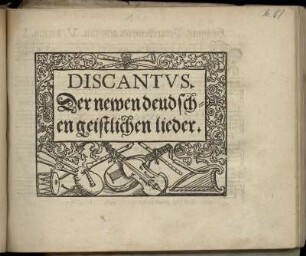 DISCANTVS.
Der newen deudsch-
en geistlichen lieder.